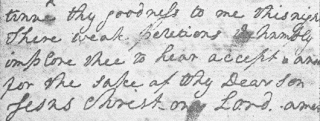 tinne thy goodness to me this nigh
These weak petitions I humbly
implore thee to hear accept & an
for the sake of thy Dear son
Jesus Christ my Lord. amen